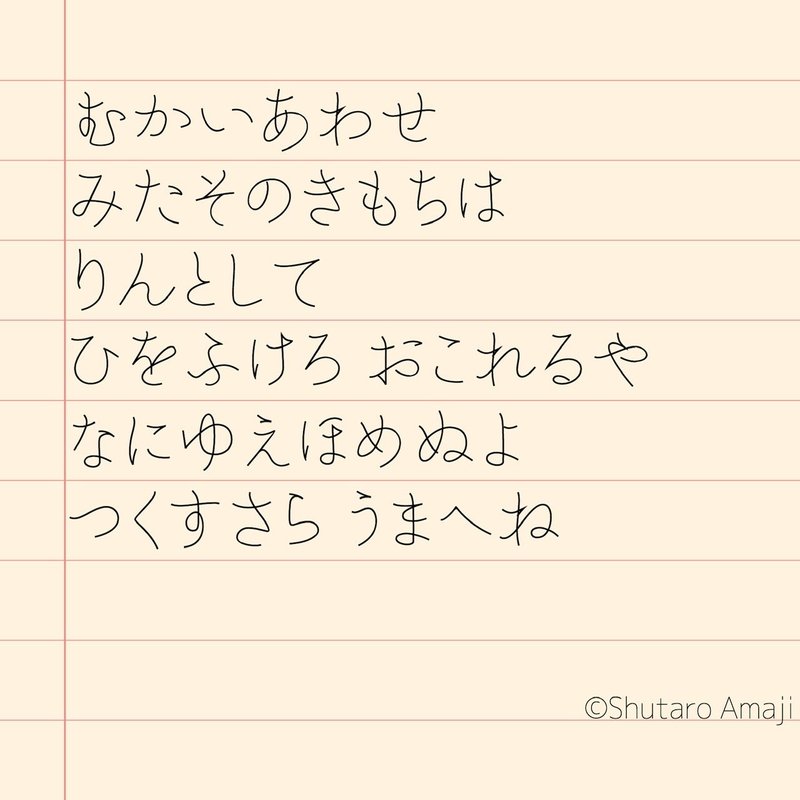 むかいあわせ
みたそのきもちは
りんとして
ひをふけろ おこれるや
なにゆえほめぬよ
つくすさら うまへね
©Shutaro Amaji